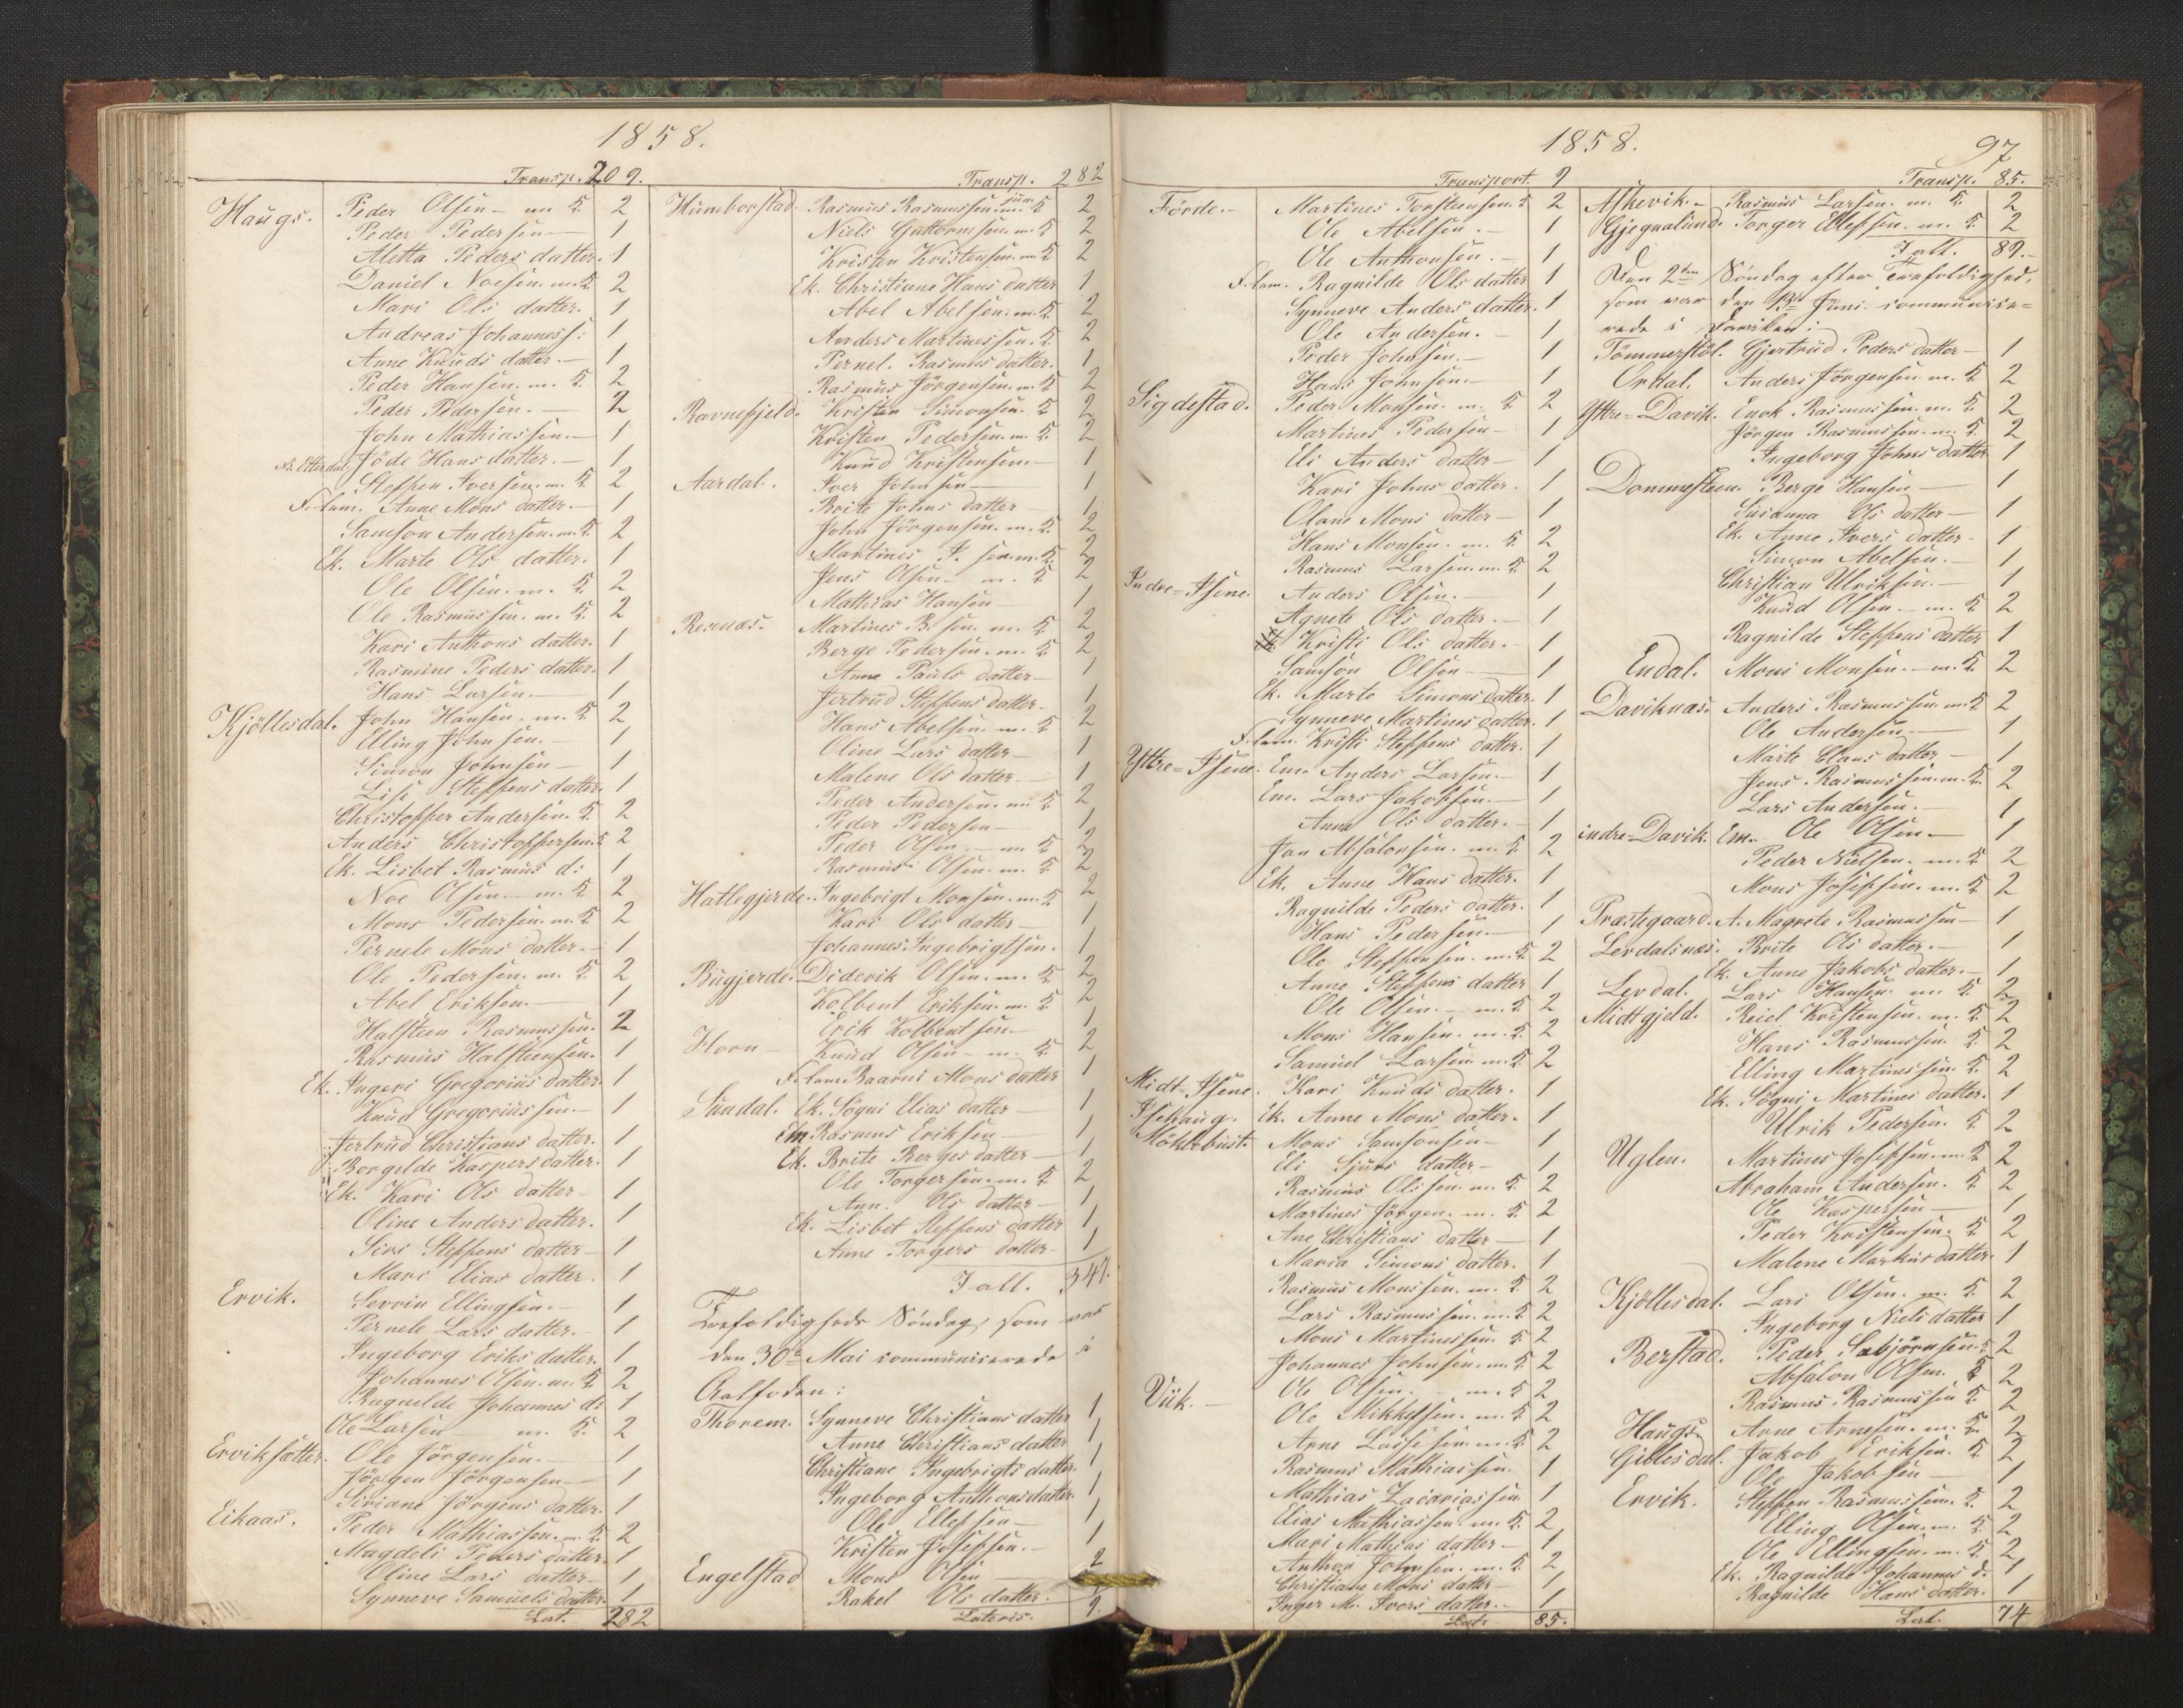 1858.
Transp. 209.
Haugs. Peder Olsen - m. K. 2
Peder Pedersen - 1
Aletta Peders datter. 1
Daniel Noesen. m. K. 2
Mari Ols datter. 1
Andreas Johanness: 1
Anne Knuds datter. - 1
Peder Hansen. m. K. 2
Peder Pedersen. - 2
John Mathiassen. - 1
Jöde Hans datter. - 1
Steffen Iversen. m. K. 2
F. lem. Anne Mons datter. - 1
Samson Andersen. m. K. 2
Ek. Marte Ols datter. 1
Ole Olsen. m. K. 2
Ole Rasmussen. m. K. 2
Kari Anthons datter. 1
Rasmine Peders datter. 1
Hans Larsen. - 1
Kjöllesdal. John Hansen. m. K. 2
Elling Johnsen. - 1
Simon Johnsen - 1
Lisi Steffens datter. 1
Christopher Andersen. K. 2
Anders Christophersen. K 2
Ek. Lisbet Rasmus d: 1
Noe Olsen. m. K. 2
Mons Pedersen. m. K. 2
Pernele Mons datter. - 1
Ole Pedersen. m. K. 2
Abel Eriksen. - 1
Halsteen Rasmussen. 2
Rasmus Halsteensen. 1
Ek. Ingeri Gregorius datter. 1
Knud Gregoriussen - 1
Jertrud Christians datter. 1
Borgilde Kaspers datter. 1
Ek. Kari Ols datter - 1
Oline Anders datter. 1
Siri Steffens datter - 1
Mari Elias datter. 1
Ervik. Severin Ellingsen. - 1
Pernele Lars datter. - 1
Ingeborg Eriks datter. 1
Johannes Olsen. m. K. 2
Ragnilde Johannes d: 1
Ole Larsen m. K. 2
Erviksætter. Ole Jörgensen. 1
Jörgen Jörgensen - 1
Siriane Jörgens datter. 1
Eikaas. Peder Mathiassen. m. K. 2
Magdeli Peders datter. 1
Oline Lars datter. - 1
Synneve Samuels datter. 1
Lat. 282
Transp. 282
Humborstad. Rasmus Rasmussen jun. m. K 2
Niels Guttormsen. m. K 2
Kristen Kristensen. m. K 2
Ek. Christiane Hans datter 1
Abel Abelsen. m. K. 2
Anders Martinussen. K. 2
Pernel. Rasmus datter. 1
Rasmus Jörgensen. m. K 2
Ravnefjeld. Kristen Simonsen. K 2
Kristen Pedersen. m. K. 2
Knud Kristensen. - 1
Aardal. Iver Johnsen - 1
Brite Johns datter 1
John Jörgensen. m. K. 2
Martines P. sen. m. K. 2
Jens Olsen - m. K 2
Mathias Hansen - 1
Rexnæs. Martines B. sen. m. K. 2
Berge Pedersen. m. K. 2
Anne Pauls datter - 1
Jertrud Steffens datter. 1
Hans Abelsen. m. K 2
Oline Lars datter - 1
Malene Ols datter. 1
Peder Andersen. m. K. 2
Peder Pedersen - 1
Peder Olsen - m. K 2
Rasmus Olsen. m. K. 2
Hatlegjerde. Ingebrigt Monsen. m. K. 2
Kari Ols datter - 1
Johannes Ingebrigtsen. 1
Bugjerde. Diderik Olsen. m. K. 2
Kolbent Eriksen. m. K. 2
Erik Kolbentsen - 1
Horn - Knud Olsen - m. K. 2
F. lem Baarni Mons datter 1
Sundal. Ek. Sögni Elias datter - 1
Em Rasmus Eriksen - 1
Ek. Brite Berges datter - 1
Ole Torgersen. m. K 2
Ann. Ols datter - 1
Ek. Lisbet Steffens datter 1
Anne Torgers datter - 1
I alt. 347.
Trefoldigheds Söndag, som var
den 30te Mai communicerede i
Aalfoden:
Thorem. Synneve Christians datter 1
Anne Christians datter 1
Christiane Ingebrigts datter. 1
Ingeborg Anthons datter. 1
Ole Ellefsen - 1
Kristen Josefsen. - 1
Engelstad Mons Olsen 2
Rakel Ols datter. 1
Lateris. 9.
1858. 97
Transport. 9
Förde. - Martines Torsteensen. K 2
Ole Abelsen. - 1
Ole Anthonsen. - 1
F. lem. Ragnilde Ols datter 1
Synneve Anders datter. 1
Ole Andersen. - 1
Peder Johnsen. - 1
Hans Johnsen. - 1
Sigdestad. Peder Monsen. m. K. 2
Martines Pedersen - 1
Eli Anders datter - 1
Kari Johns datter. 1
Olane Mons datter - 1
Hans Monsen. m. K. 2
Rasmus Larsen. m. K. 2
Indre-Isene. Anders Olsen. - 1
Agnete Ols datter. - 1
Kristi Ols datter. - 1
Samson Olsen - 1
Ek. Marte Simons datter. 1
Synneve Martines datter. 1
F. lem. Kristi Steffens datter. 1
Yttre-Isene. Em. Anders Larsen. - 1
Em. Lars Jakobsen. - 1
Anna Ols datter. - 1
Jan Absalonsen. m. K. 2
Ek. Anne Hans datter. 1
Ragnilde Peders datter. 1
Hans Pedersen. - 1
Ole Steffensen. m. K. 2
Anne Steffens datter 1
Ole Olsen. - m. K. 2
Mons Hansen. m. K. 2
Samuel Larsen. m. K 2
Midt-Isene. Kari Knuds datter. 1
Isehaug. Ek. Anne Mons datter. 1
Möhlebust. Mons Samsonsen - 1
Eli Sjurs datter - 1
Rasmus Olssen. m. K. 2
Martines Jörgen. m. K. 2
Ane Christians datter - 1
Maria Simons datter. 1
Rasmus Monssen. m. K. 2
Lars Rasmussen. m. K 2
Mons Martinessen. K 2
Johannes Johnsen. m. K 2
Viik. - Ole Olsen. - m. K 2
Ole Mikkelsen. m. K. 2
Arne Lassesen. m. K. 2
Rasmus Mathiassen. 1
Mathias Zacariassen. 1
Elias Mathiassen. m. K. 2
Mari Mathias datter - 1
Anthon Johnsen. m. K. 2
Christiane Mons datter - 1
Inger M. Ivers datter. - 1
Lat. 85.
Transp. 85.
Askevik. - Rasmus Larsen. m. K. 2
Gjegnalund. Torger Ellefsen. m. K. 2
I alt. 89. -
Den 2den Söndag efter Trefoldighed,
som var den 13de Juni. communice=
rede i Daviken:
Tömmerstöl. Gjertrud Peders datter - 1
Ordal. Anders Jörgensen m. K. 2
Yttre-Davik. Enok Rasmussen. m. K. 2
Jörgen Rasmussen. m. K. 2
Ingeborg Johns datter. 1
Dommesteen. Berge Hansen - 1
Susanna Ols datter - 1
Ek. Anne Ivers datter. 1
Simon Abelsen. - 1
Christian Ulriksen. - 1
Knud Olsen - m. K. 2
Ragnilde Steffens datter 1
Endal. Mons Monsen. - m. K. 2
Daviknæs. Anders Rasmussen m. K 2
Ole Andersen. - 1
Marte Claus datter - 1
Jens Rasmussen. m. K. 2
Lars Andersen. - 1
indre-Davik. Em. Ole Olsen. - 1
Peder Nielsen. m. K 2
Mons Josefsen. m. K 2
Præstegaard. A. Magrete Rasmussen - 1
Levdalsnæs. Brite Ols datter. - 1
Ek. Anne Jakobs datter. - 1
Levdal. Lars Hansen m. K. 2
Midtgjeld. Reiel Kristensen. m. K. 2
Hans Rasmussen. K. 2
Elling Martinussen. K. 2
Ek. Sögni Martines datter. 1
Ulrik Pedersen. K 2
Uglen. Martines Josefsen. m. K. 2
Abraham Andersen. K. 2
Ole Kaspersen - 1
Peder Kristensen. K 2
Malene Markus datter. 1
Kjöllesdal. Lars Olsen. m. K. 2
Ingeborg Niels datter 1
Berstad. Peder Sæbjörnsen. K 2
Absalon Olsen. K 2
Rasmus Rasmussen K. 2
Haugs. Arne Arnesen. m. K. 2
Giellesdal. Jakob Eriksen. K. 2
Ole Jakobsen - 1
Ervik. Steffen Rasmussen. K. 2
Elling Olsen. m. K. 2
Ole Ellingsen. m. K. 2
Ek. Ragnilde Johannes d. 1
Ragnilde Hans datter. 1
Lat. 74